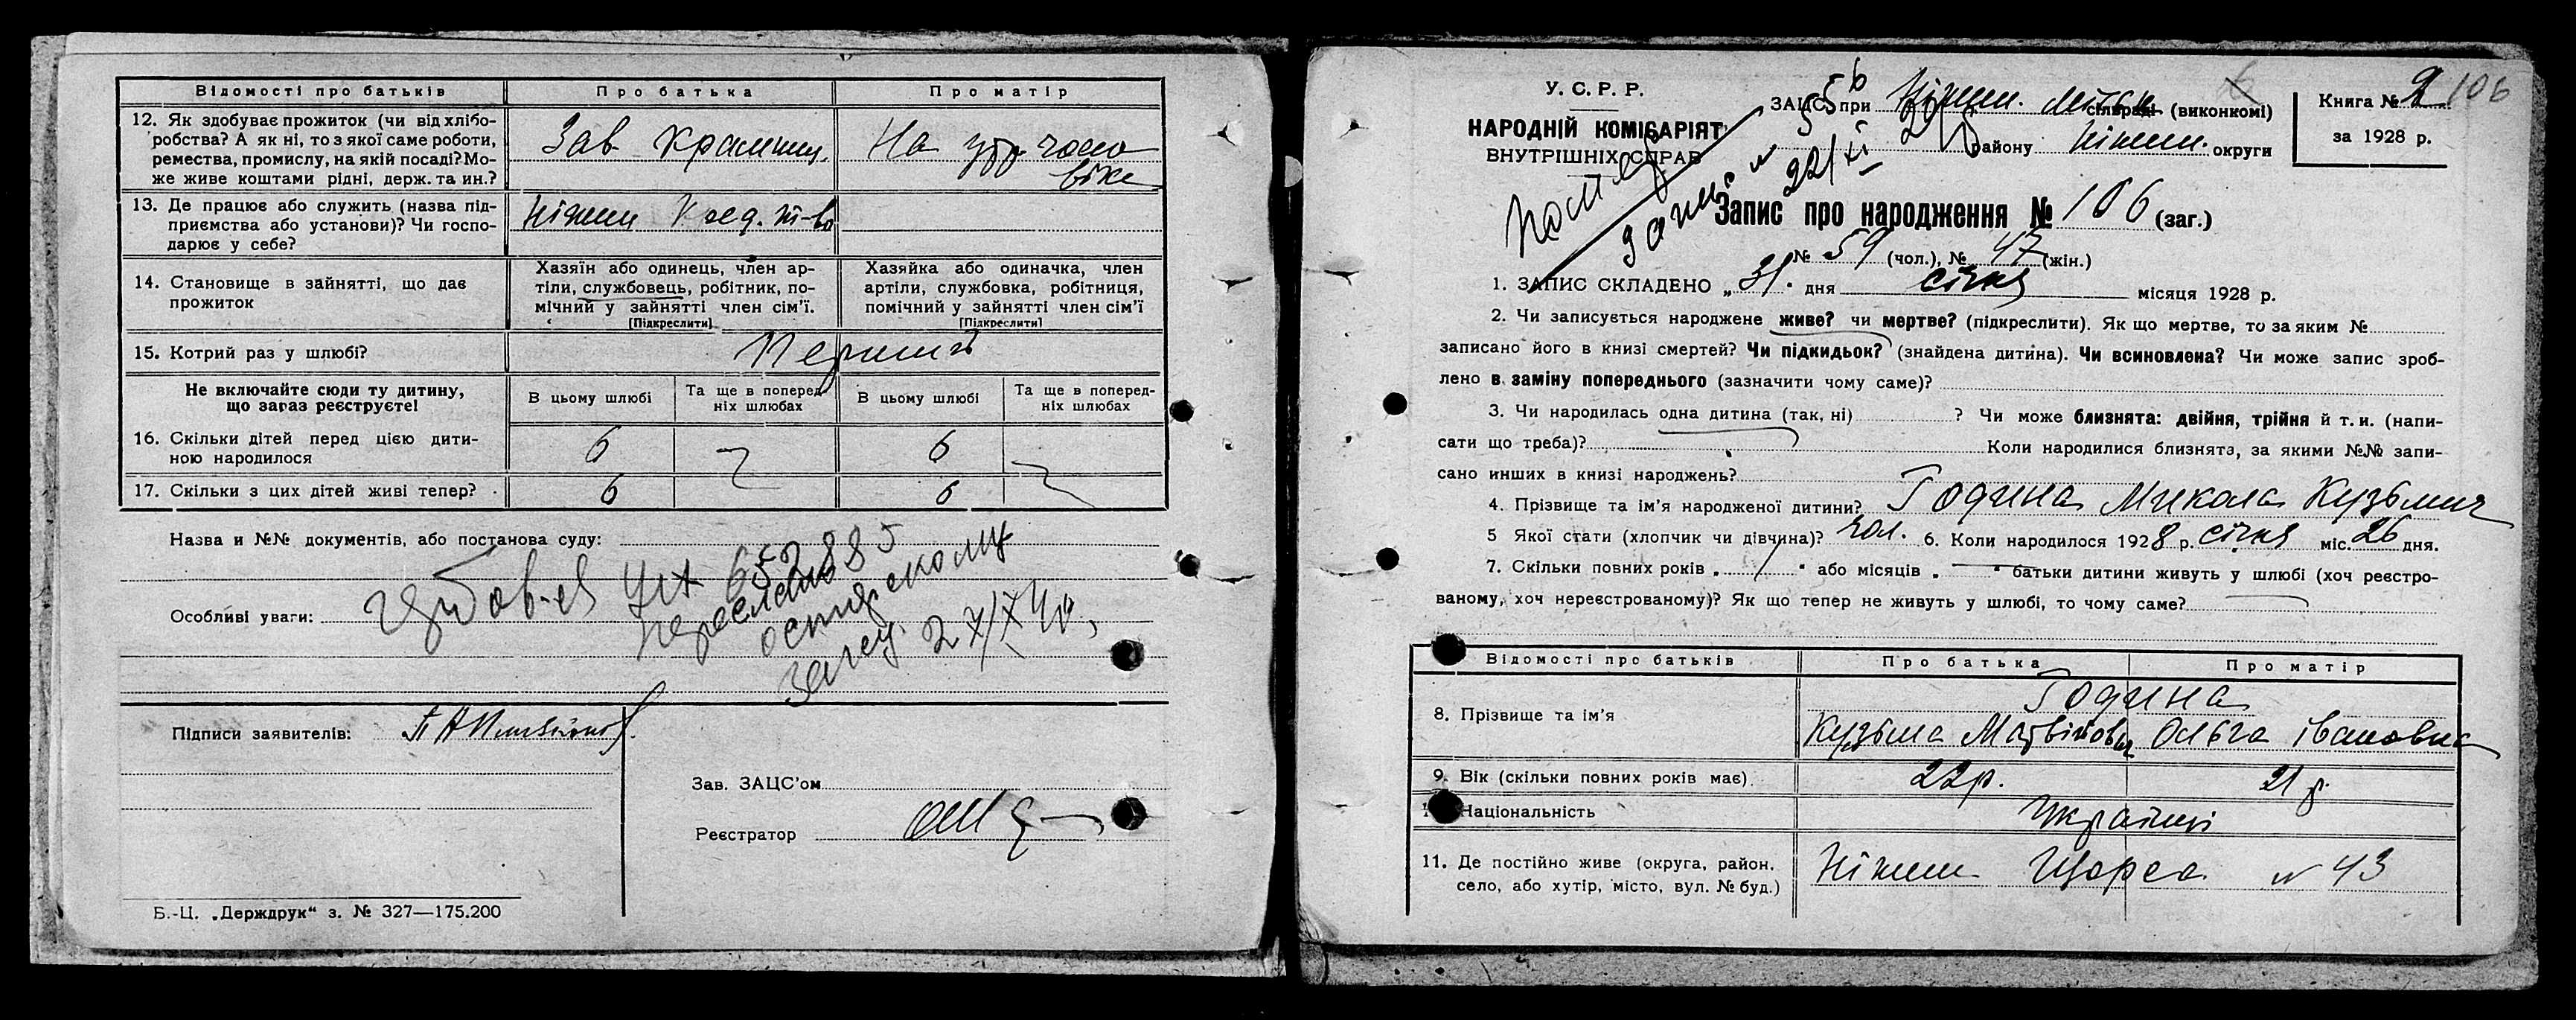 Відомості про батьків Про батька Про матір
12. Як здобуває прожиток (чи від хлібо-
робства? А як ні, то з якої саме роботи,
ремества, промислу, на якій посаді? Мо-
же живе коштами рідні, держ. та ин.?
Зав крамниц. На утр чоло
віка
13. Де працює або служить (назва під-
приємства або установи)? Чи госпо-
дарює у себе?
Ніжин т-во
14. Становище в зайнятті, що дає
прожиток
Хазяїн або одинець, член ар-
тіли, службовець, робітник, по-
мічний у зайнятті член сім'ї.
[Підкреслити]
Хазяйка або одиначка, член
артіли, службовка, робітниця,
помічний у зайнятті член сім'ї
[Підкреслити]
15. Котрий раз у шлюбі? Перший
Не включайте сюди ту дитину,
що зараз реєструєте!
В цьому шлюбі
Та ще в поперед-
ніх шлюбах
В цьому шлюбі
Та ще в поперед-
ніх шлюбах
16. Скільки дітей перед цією дити-
ною народилося
6 6
17. Скільки з цих дітей живі тепер? 6 6
Назва и №№ документів, або постанова суду:
Особливі уваги:
652885
27/X 40
Підписи заявителів:
Зав. ЗАЦС'ом
Реєстратор
Б.-Ц. „Держдрук“ з. № 327—175.200
У. С. Р. Р.
НАРОДНІЙ КОМІСАРІЯТ
ВНУТРІШНІХ СПРАВ
556
22/XI
ЗАЦС при Ніжин. міськ сільраді (виконкомі)
району Ніжин. округи
Книга № 2 106
за 1928 р.
Запис про народження № 106 (заг.)
№ 59 (чол.), № 47 (жін.)
1. ЗАПИС СКЛАДЕНО „31“ дня січня місяця 1928 р.
2. Чи записується народжене живе? чи мертве? (підкреслити). Як що мертве, то за яким №
записано його в книзі смертей? Чи підкидьок? (знайдена дитина). Чи всиновлена? Чи може запис зроб-
лено в заміну попереднього (зазначити чому саме)?
3. Чи народилась одна дитина (так, ні) ? Чи може близнята: двійня, трійня й т. и. (напи-
сати що треба)? Коли народилися близнята, за якими №№ запи-
сано инших в книзі народжень?
4. Прізвище та ім'я народженої дитини? Година Микола Кузьмич
5 Якої стати (хлопчик чи дівчина)? чол. 6. Коли народилося 1928 р. січня міс. 26 дня.
7. Скільки повних років „ “ або місяців „ “ батьки дитини живуть у шлюбі (хоч реєстро-
ваному, хоч нереєстрованому)? Як що тепер не живуть у шлюбі, то чому саме?
Відомості про батьків Про батька Про матір
Година
8. Прізвище та ім'я Кузьма Матвійович Ольга Івановна
9. Вік (скільки повних років має). 22р. 21 р.
Національність Українці
11. Де постійно живе (округа, район,
село, або хутір, місто, вул. № буд.)
Ніжин Щорса № 43